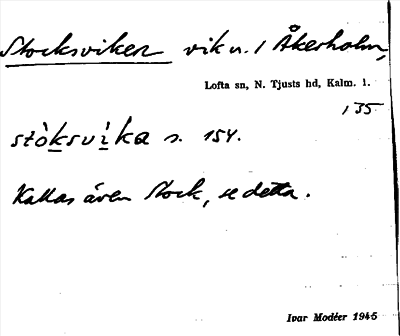 Stocksviken vik n. / Åkerholm,
Lofta sn, N. Tjusts hd, Kalm. l.
135
stòksvìka s. 154.
Kallas även Stock, se detta.
Ivar Modéer 1945